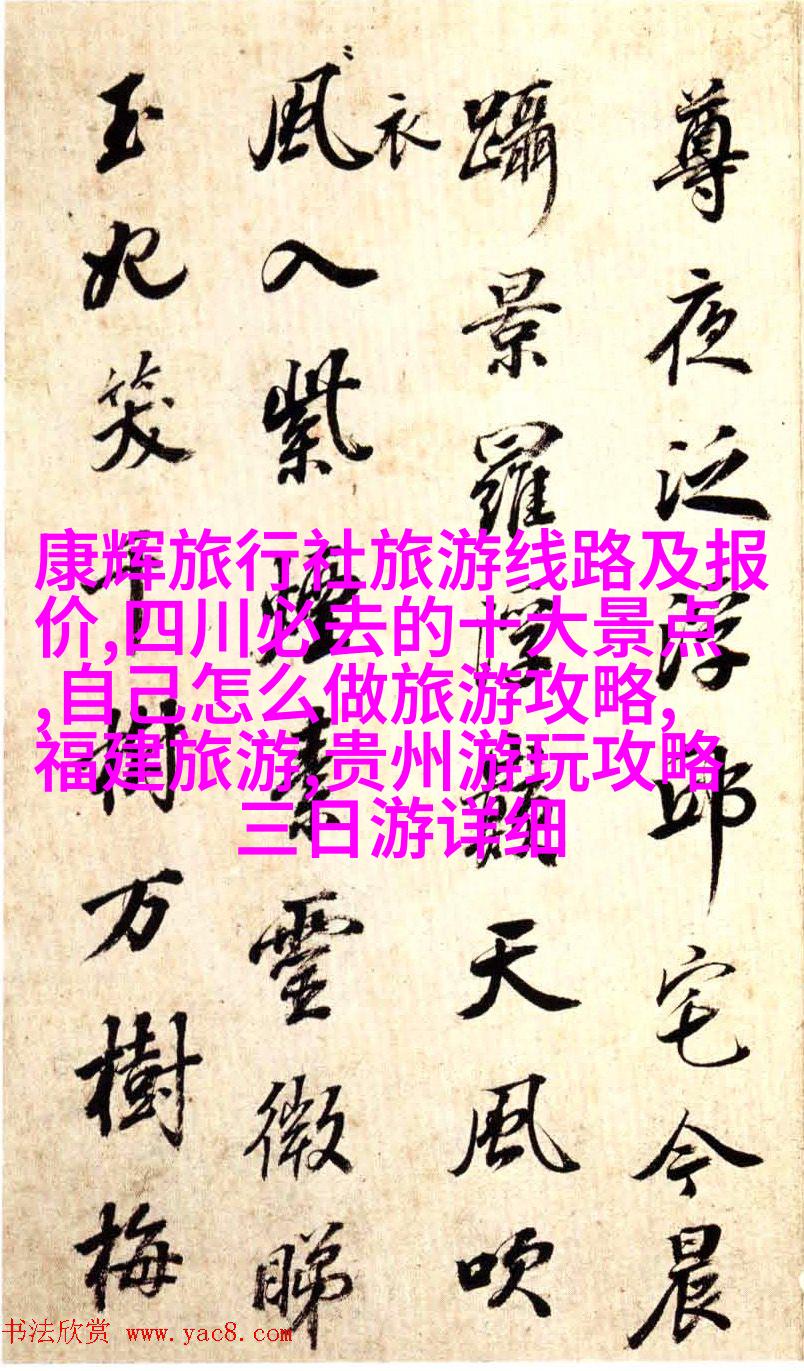 尊夜泛浮邱宅今晨
躡景羅浮巔天風吹
風衣入紫煙素靈微睇
玉妃笑千樹万樹梅
康辉旅行社旅游线路及报
价,四川必去的十大景点
,自己怎么做旅游攻略,
福建旅游,贵州游玩攻略
三日游详细
书法欣赏 www.yac8.com